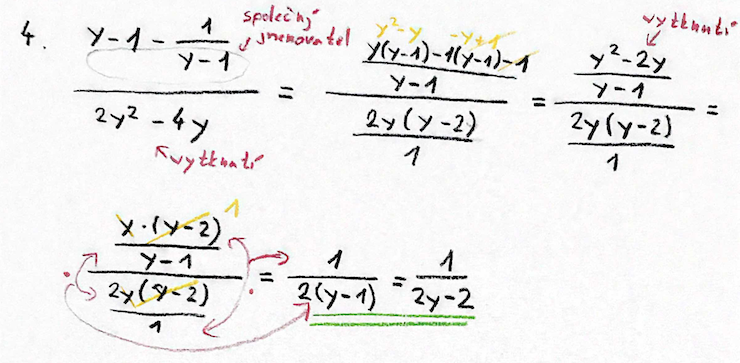 4. (y - 1 - 1/(y-1)) / (2y² - 4y) = ((y(y-1)-1(y-1)-1)/(y-1)) / (2y(y-2)/1) = ((y²-2y)/(y-1)) / (2y(y-2)/1) =
společný
jmenovatel
y²-y -y+1
vytknutí
vytknutí
((y·(y-2))/(y-1)) / (2y(y-2)/1) = 1/(2(y-1)) = 1/(2y-2)
1